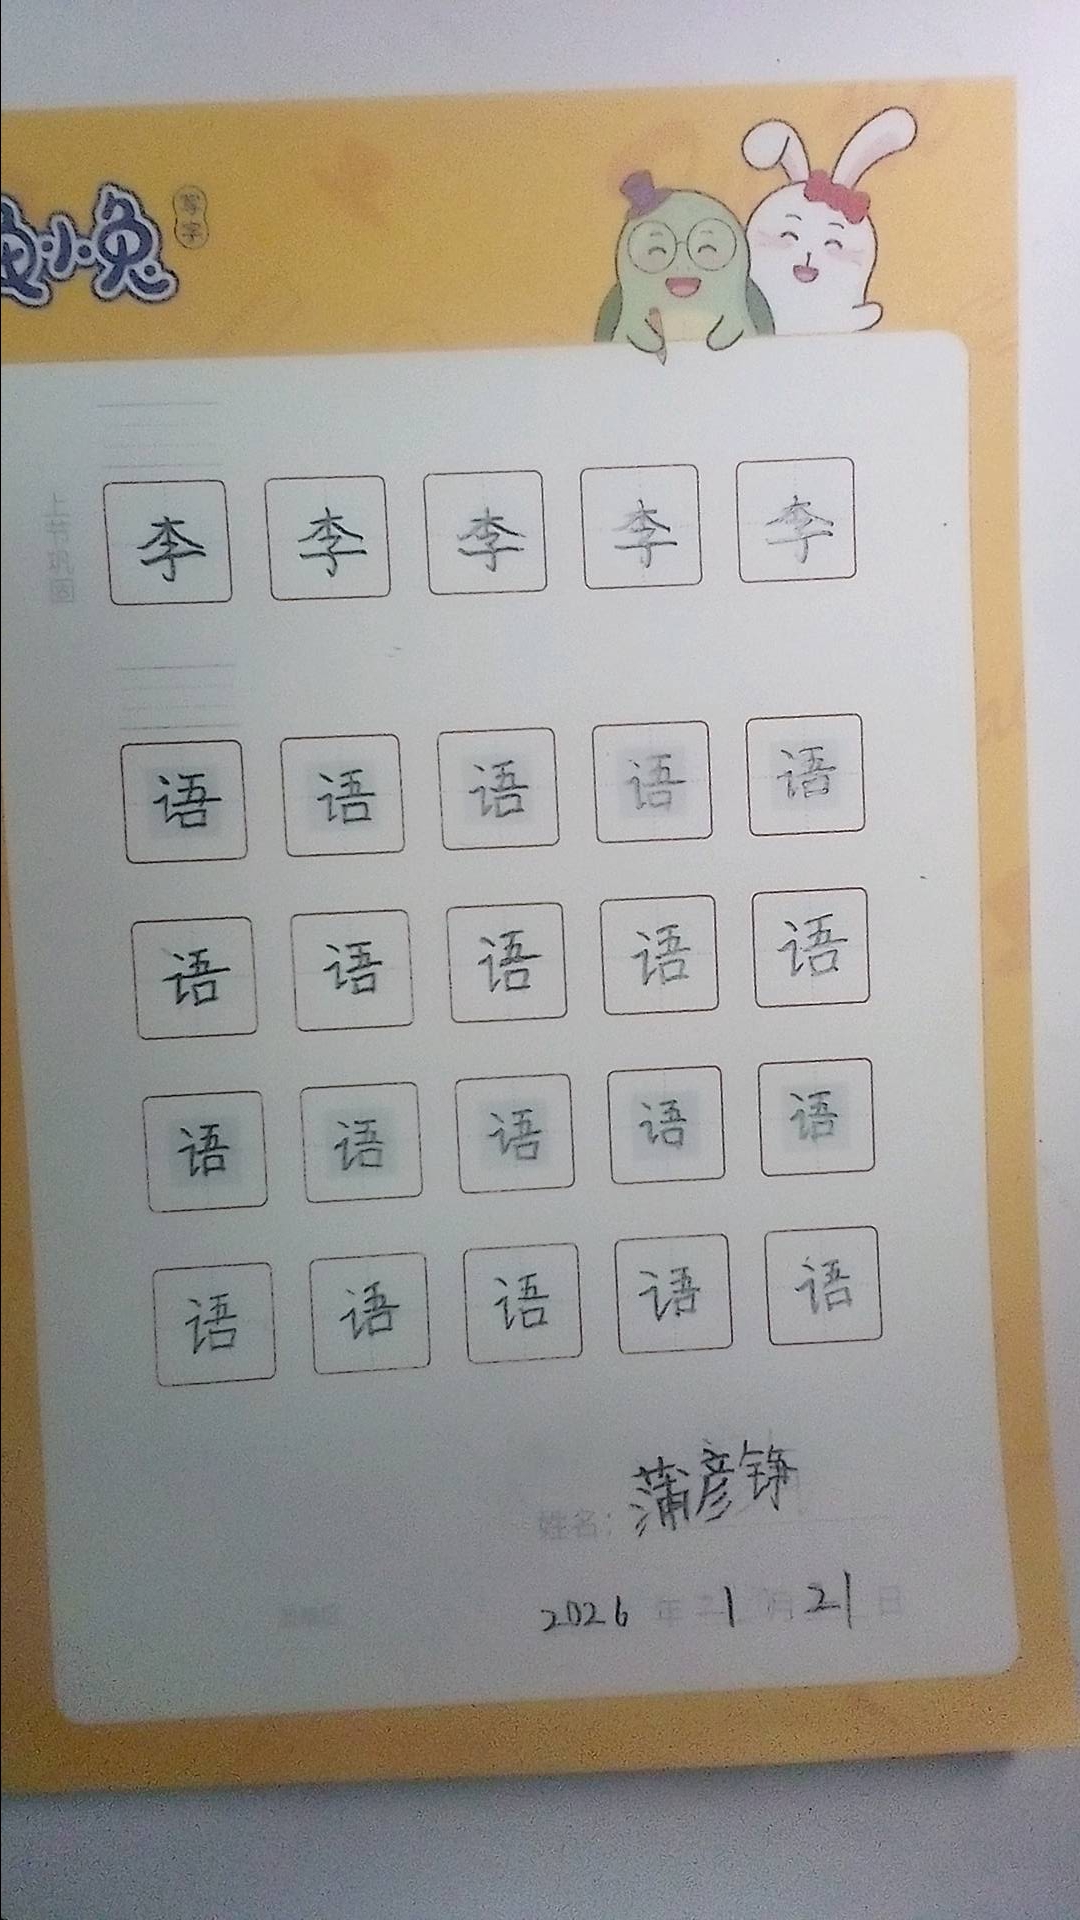 小兔
写字
上节巩固
李 李 李 李 李
语 语 语 语 语
语 语 语 语 语
语 语 语 语 语
语 语 语 语 语
姓名：蒲彦铮
2026 年 1 月 21 日